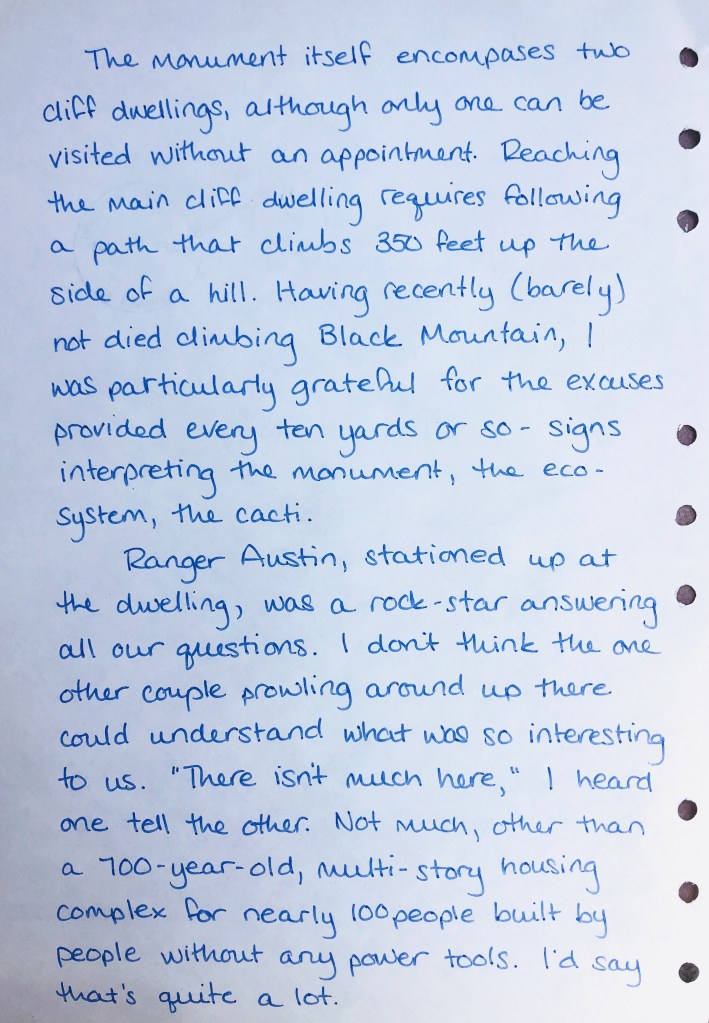 The monument itself encompases two
cliff dwellings, although only one can be
visited without an appointment. Reaching
the main cliff dwelling requires following
a path that climbs 350 feet up the
side of a hill. Having recently (barely)
not died climbing Black Mountain, I
was particularly grateful for the excuses
provided every ten yards or so - signs
interpreting the monument, the eco-
system, the cacti.
Ranger Austin, stationed up at
the dwelling, was a rock-star answering
all our questions. I don't think the one
other couple prowling around up there
could understand what was so interesting
to us. "There isn't much here," I heard
one tell the other. Not much, other than
a 700-year-old, multi-story housing
complex for nearly 100 people built by
people without any power tools. I'd say
that's quite a lot.